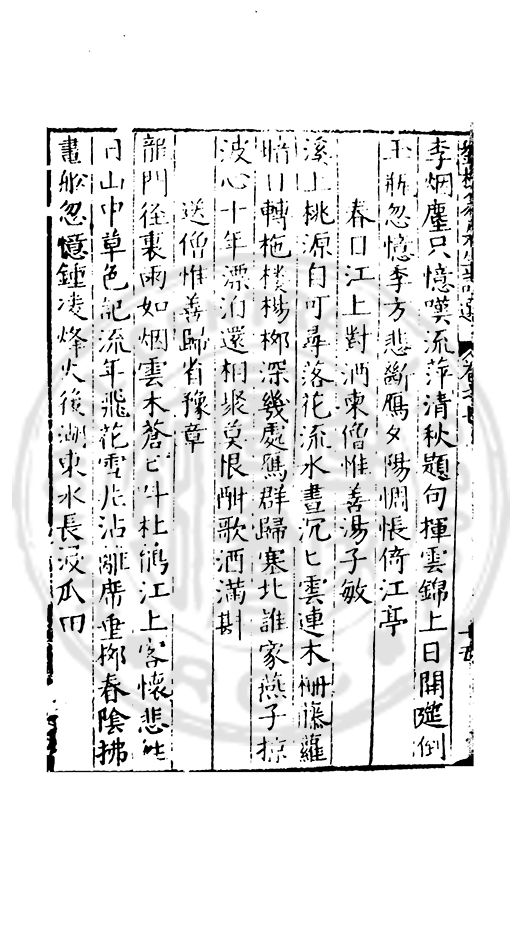 李烟塵只憶嘆流萍清秋題句揮雲錦上日開筵倒
玉瓶忽憶李方悲斷鴈夕陽惆悵倚江亭
春日江上對酒柬僧惟善湯子敏
溪上桃源自可尋落花流水晝沉匕雲連木柵藤蘿
暗日轉柂樓楊柳深幾處鴈群歸塞北誰家燕子掠
波心十年漂泊還相聚莫恨酣歌酒滿斟
送僧惟善歸省豫章
龍門徑裏雨如烟雲木蒼匕叫杜鵑江上客懷悲
日山中草色記流年飛花雪片沾離席垂柳春陰拂
畫船忽憶鍾凌烽火後湖東水長沒瓜田